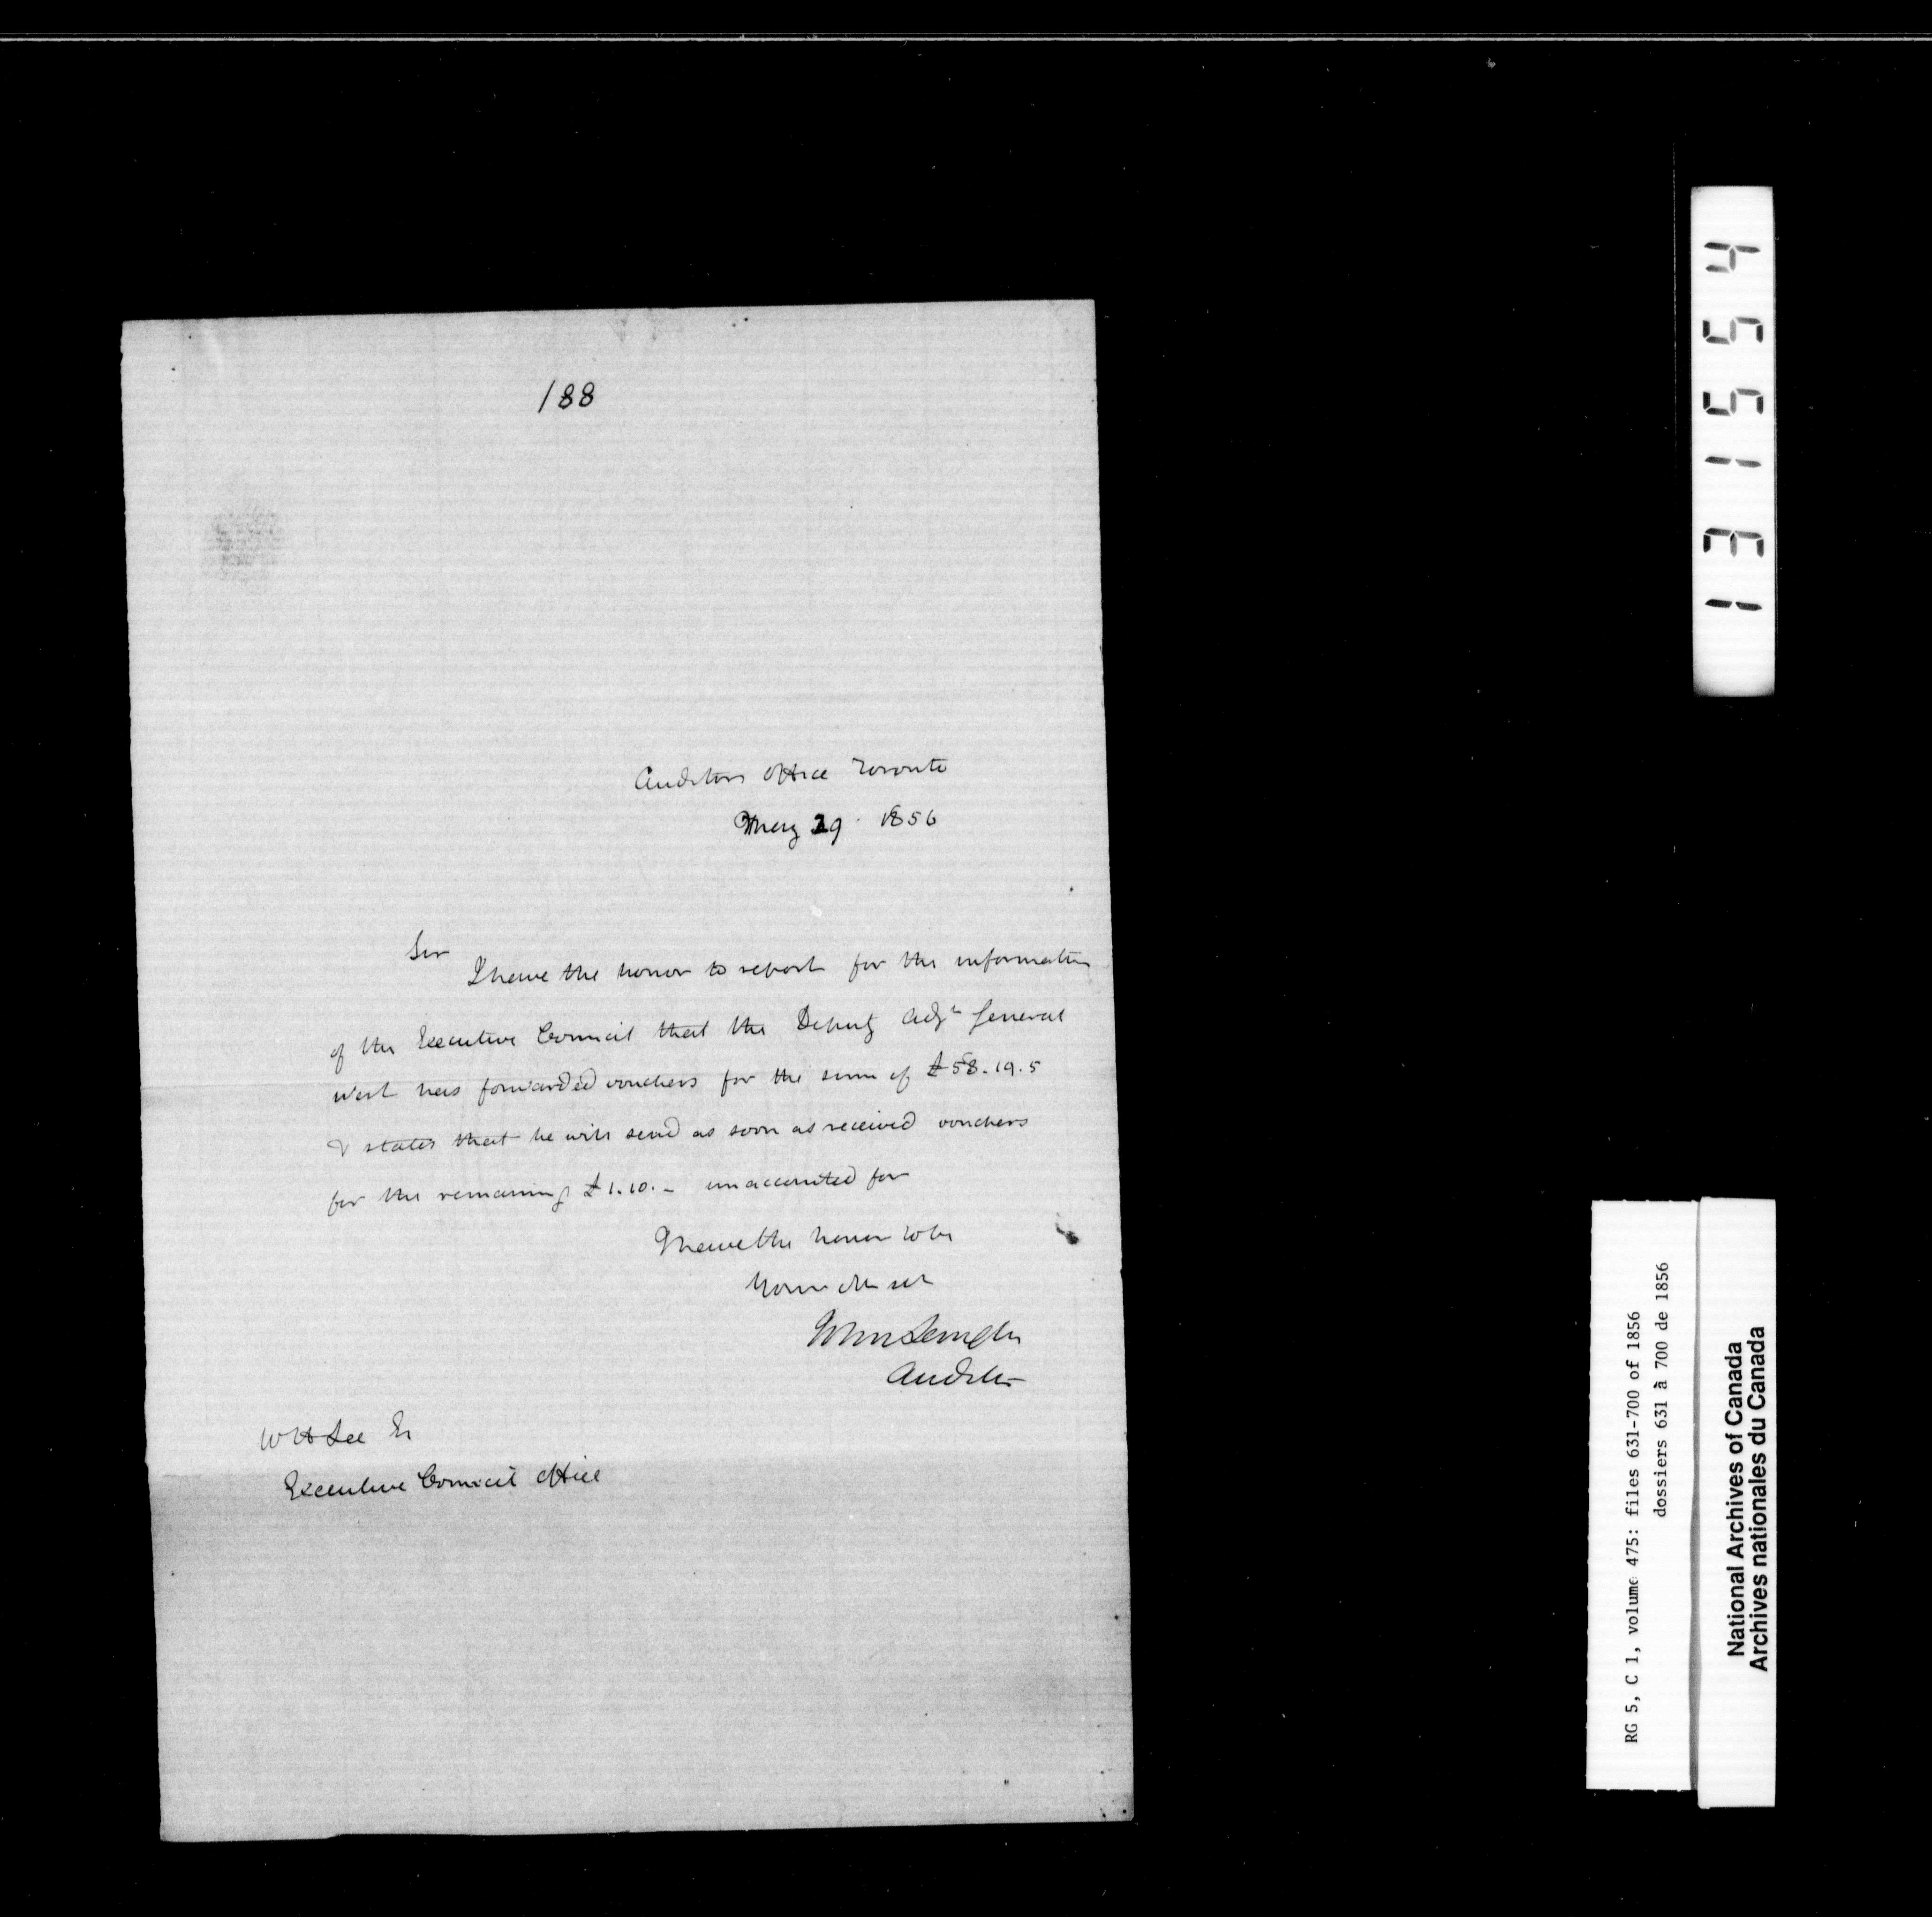 188
Auditors Office Toronto
May 29 1856
Sir
I have the honor to report for the information
of the Executive Council that the Deputy Adjt General
West has forwarded vouchers for the sum of £58.19.5
& states that he will send as soon as received vouchers
for the remaining £1.10.- unaccounted for
I have the honor to be
Your Ob Set
John Langton
Auditor
W H Lee Er
Executive Council Office
131554
RG 5, C 1, volume 475: files 631-700 of 1856
dossiers 631 à 700 de 1856
National Archives of Canada
Archives nationales du Canada